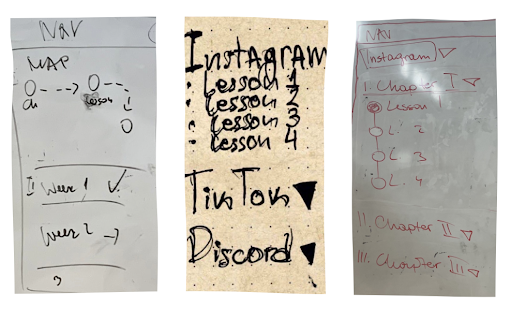 NAV
MAP
Ch
Lesson
II Week 1 ✓
Week 2 →
3
Instagram
• Lesson 1
• Lesson 2
• Lesson 3
• Lesson 4
TikTok ▼
Discord ▼
NAV
Instagram ▽
I. Chapter I ▽
Lesson 1
L. 2
L. 3
L. 4
II. Chapter II ▽
III. Chapter III ▽